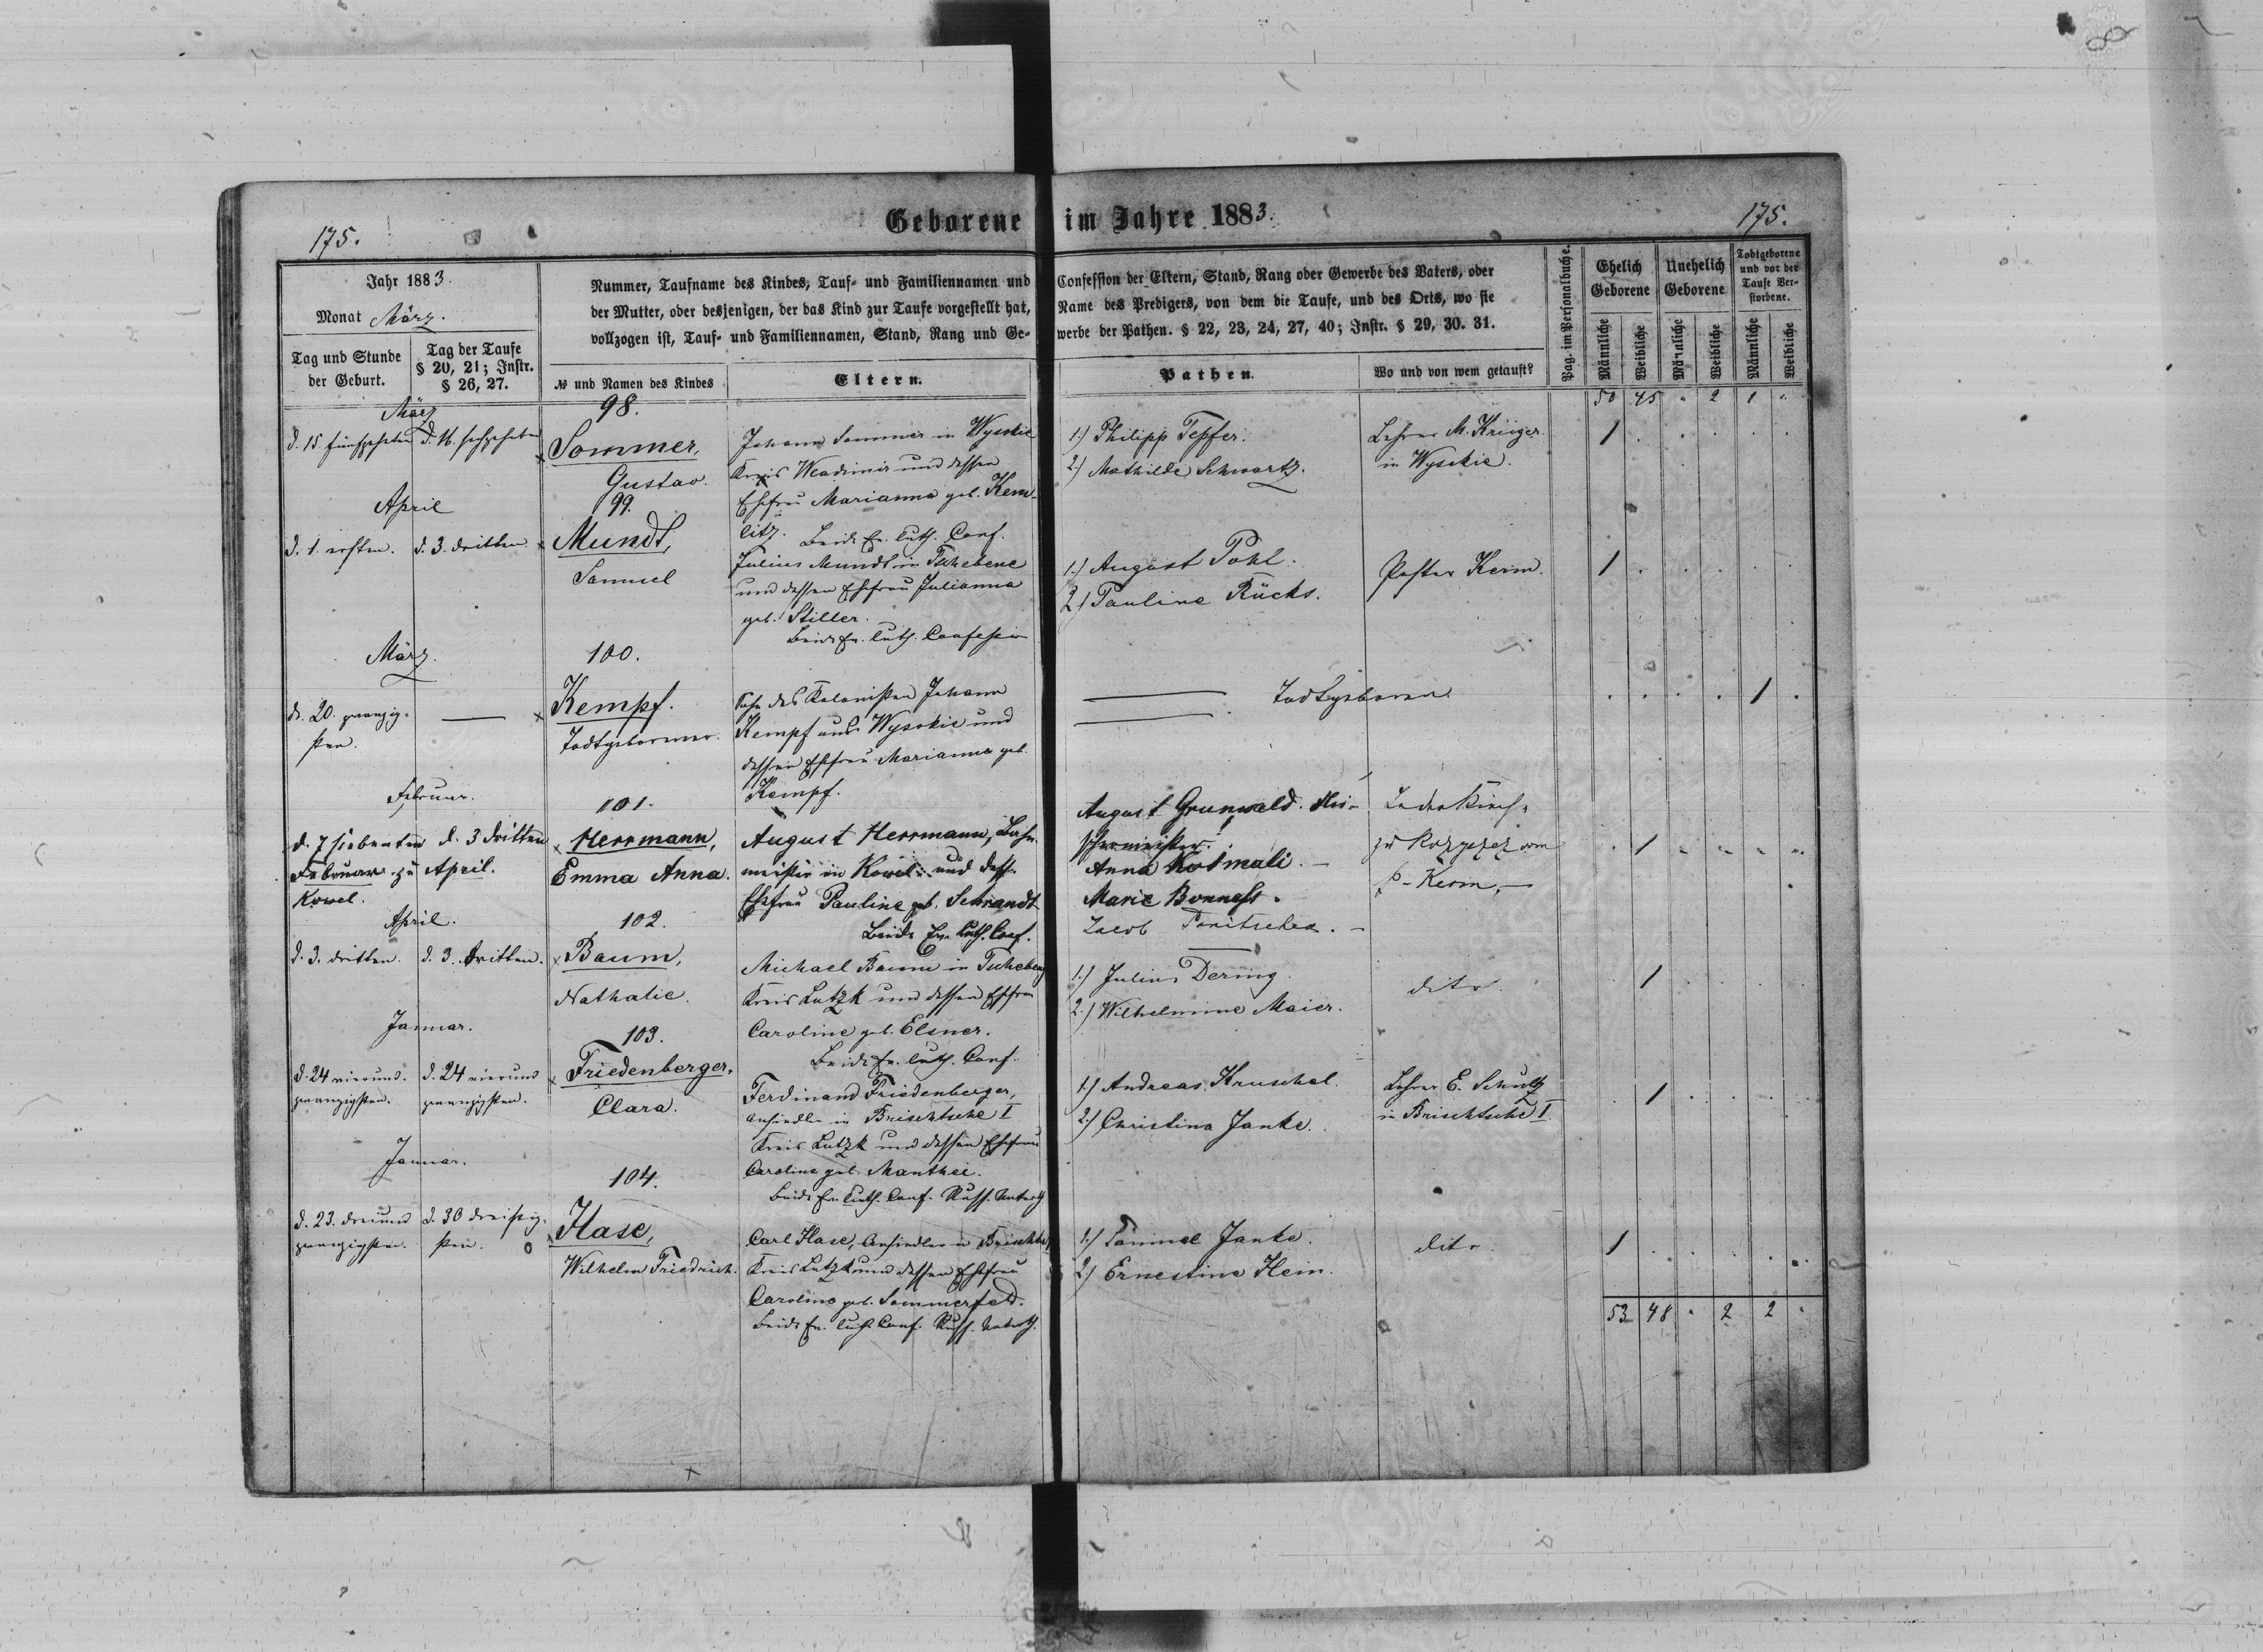 Geborene im Jahre 1883.
175.
175.
Jahr 1883.
Monat März.
Tag und Stunde
der Geburt.
Tag der Taufe
§ 20, 21; Instr.
§ 26, 27.
Nummer, Taufname des Kindes, Tauf- und Familiennamen und
der Mutter, oder desjenigen, der das Kind zur Taufe vorgestellt hat,
vollzogen ist, Tauf- und Familiennamen, Stand, Rang und Ge-
№ und Namen des Kindes
Eltern.
Confession der Eltern, Stand, Rang oder Gewerbe des Vaters, oder
Name des Predigers, von dem die Taufe, und des Orts, wo sie
werbe der Pathen. § 22, 23, 24, 27, 40; Instr. § 29, 30. 31.
Pathen.
Wo und von wem getauft?
Pag. im Personalbuche.
Ehelich
Geborene
Unehelich
Geborene
Todtgeborene
und vor der
Taufe Ver-
storbene.
Männliche
Weibliche
Männliche
Weibliche
Männliche
Weibliche
50 45 " 2 1 "
März
d. 15. fünfzehnten
d. 16. sechzehnten
98.
Sommer,
Gustav.
Johann Sommer in Wysokie
Kreis Wladimir und dessen
Ehefrau Marianna geb. Kem-
litz. Beide Ev. luth. Conf.
1.) Philipp Tepfer.
2.) Mathilde Schwartz.
Lehrer M. Krüger.
in Wysokie.
1
April
d. 1. ersten.
d. 3. dritten.
99.
Mundt,
Samuel
Julius Mundt in Tschebene
und dessen Ehefrau Julianna
geb. Stiller.
Beide Ev. luth. Confession
1.) August Pohl.
2.) Pauline Rücks.
Pastor Kerm.
1
März.
d. 20. zwanzig-
sten.
100.
Kempf.
Todtgeborner.
Sohn des Kolonisten Johann
Kempf aus Wysokie und
dessen Ehefrau Marianna geb.
Kempf.
Todtgeboren
1
Februar.
d. 7 siebenten
Februar zu
Kowel.
d. 3 dritten
April.
101.
Herrmann,
Emma Anna.
August Herrmann, Bahn-
meister in Kowel und dess.
Ehefrau Pauline geb. Schrandt
Beide Ev. luth. Conf.
August Grunwald.
Anna Kosmali.
Marie Bonness.
Jacob
In der Kirch.
zu Rozyszcz vom
P. Kerm.
1
April.
d. 3. dritten.
d. 3. dritten.
102.
Baum,
Nathalie.
Michael Baum in Tschebeny
Kreis Lutzk und dessen Ehefrau
Caroline geb. Elsner.
Beide Ev. luth. Conf.
1.) Julius Dering
2.) Wilhelmine Maier.
dito.
1
Januar.
d. 24 vierund-
zwanzigsten.
d. 24 vierund
zwanzigsten.
103.
Friedenberger,
Clara.
Ferdinand Friedenberger,
Ansiedler in Brischtsche I
Kreis Lutzk und dessen Ehefrau
Caroline geb. Manthei.
Beide Ev. luth. Conf. Russ. Unterth
1.) Andreas Kruschel.
2.) Christina Janke.
Lehrer E. Schultz
in Brischtsche I.
1
Januar.
d. 23. dreiund
zwanzigsten.
d. 30 dreißig-
sten.
104.
Hase,
Wilhelm Friedrich.
Carl Hase, Ansiedler in Brischtsche
Kreis Lutzk und dessen Ehefrau
Caroline geb. Sommerfeld.
Beide Ev. luth Conf. Russ. Unterth.
1.) Samuel Janke.
2.) Ernestine Hein.
dito.
1
53 48 " 2 2 "